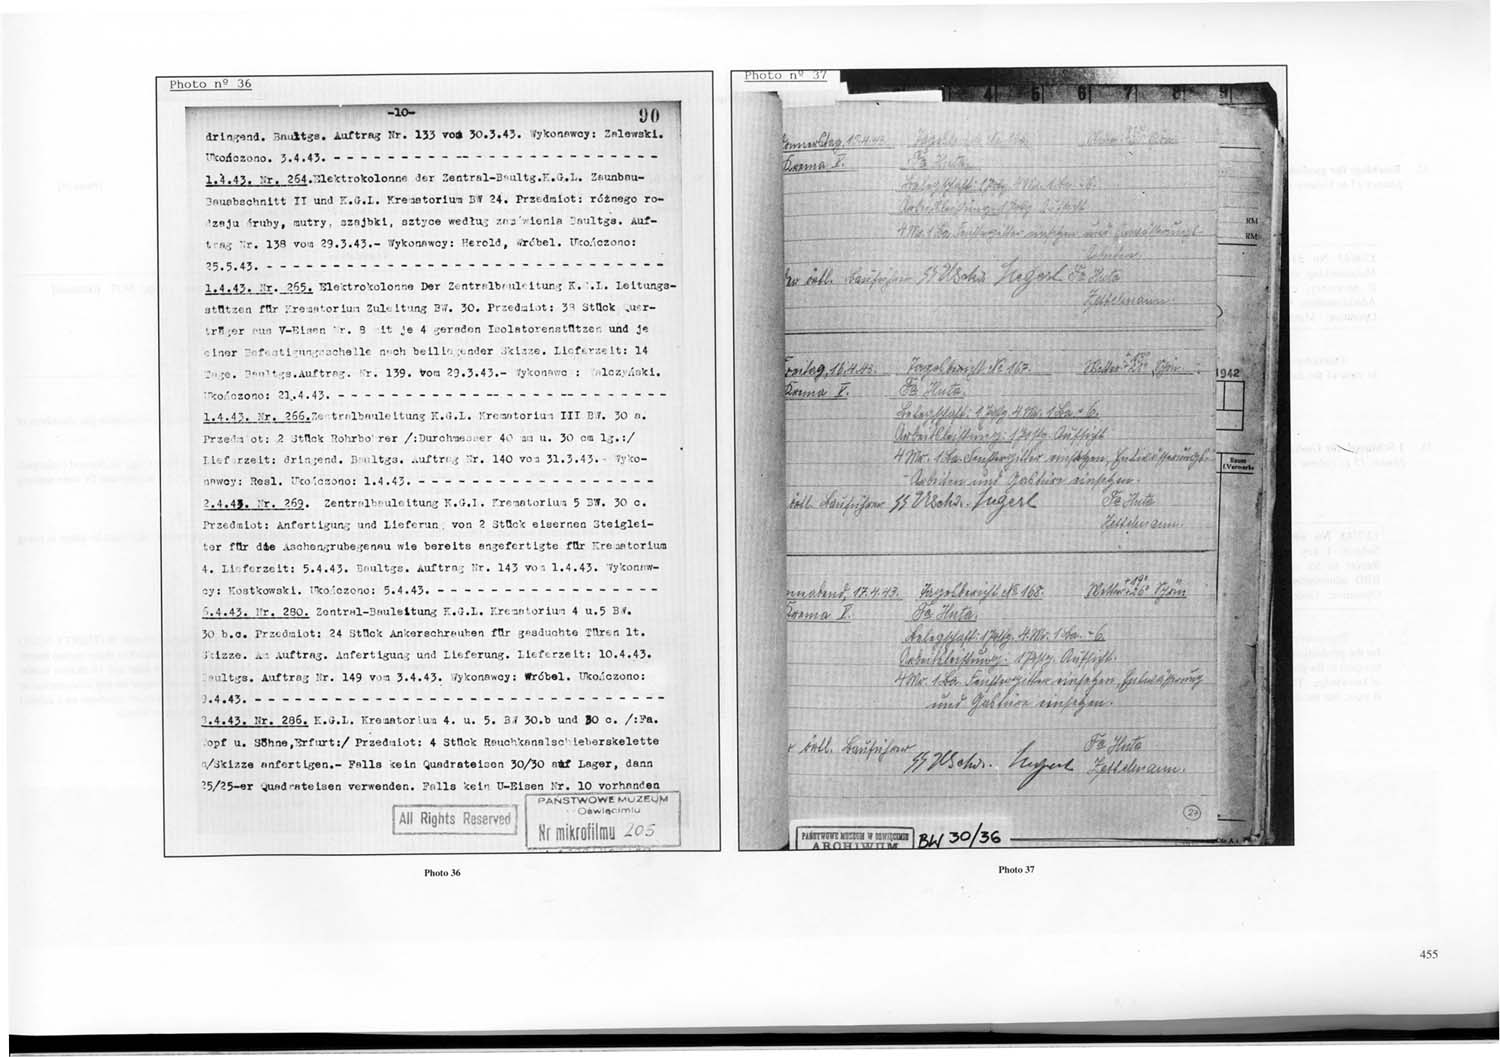 Photo nº 36
-10-
90
dringend. Baultgs. Auftrag Nr. 133 vom 30.3.43. Wykonawcy: Zalewski.
Ukończono. 3.4.43. - - - - - - - - - - - - - - - - - - - - - - - -
1.4.43. Nr. 264.Elektrokolonne der Zentral-Baultg.K.G.L. Zaunbau-
Bauabschnitt II und K.G.L. Krematorium BW 24. Przedmiot: różnego ro-
dzaju śruby, mutry, szajbki, sztyce według zamówienia Baultgs. Auf-
trag Nr. 138 vom 29.3.43.- Wykonawcy: Herold, Wróbel. Ukończono:
25.5.43. - - - - - - - - - - - - - - - - - - - - - - - - - - - -
1.4.43. Nr. 265. Elektrokolonne Der Zentralbauleitung K.G.L. Leitungs-
stützen für Krematorium Zuleitung BW. 30. Przedmiot: 38 Stück Quer-
träger aus V-Eisen Nr. 8 mit je 4 geraden Isolatorenstützen und je
einer Befestigungsschelle nach beiliegender Skizze. Lieferzeit: 14
Tage. Baultgs.Auftrag. Nr. 139. vom 29.3.43.- Wykonawc : Walczyński.
Ukończono: 21.4.43. - - - - - - - - - - - - - - - - - - - - - -
1.4.43. Nr. 266.Zentralbauleitung K.G.L. Krematorium III BW. 30 a.
Przedmiot: 2 Stück Rohrbohrer /:Durchmesser 40 mm u. 30 cm lg.:/
Lieferzeit: dringend. Baultgs. Auftrag Nr. 140 vom 31.3.43.- Wyko-
nawcy: Resl. Ukończono: 1.4.43. - - - - - - - - - - - - - - - - -
2.4.43. Nr. 269. Zentralbauleitung K.G.L. Krematorium 5 BW. 30 c.
Przedmiot: Anfertigung und Lieferung von 2 Stück eisernen Steiglei-
ter für die Aschengrubegenau wie bereits angefertigte für Krematorium
4. Lieferzeit: 5.4.43. Baultgs. Auftrag Nr. 143 vom 1.4.43. Wykonaw-
cy: Kostkowski. Ukończono: 5.4.43. - - - - - - - - - - - - - - - -
6.4.43. Nr. 280. Zentral-Bauleitung K.G.L. Krematorium 4 u.5 BW.
30 b.c. Przedmiot: 24 Stück Ankerschrauben für gasduchte Türen lt.
Skizze. Auftrag. Anfertigung und Lieferung. Lieferzeit: 10.4.43.
Baultgs. Auftrag Nr. 149 vom 3.4.43. Wykonawcy: Wróbel. Ukończono:
9.4.43. - - - - - - - - - - - - - - - - - - - - - - - - - - - - -
8.4.43. Nr. 286. K.G.L. Krematorium 4. u. 5. BW 30.b und 30 c. /:Fa.
Topf u. Söhne,Erfurt:/ Przedmiot: 4 Stück Rauchkanalschieberskelette
n/Skizze anfertigen.- Falls kein Quadrateisen 30/30 auf Lager, dann
25/25-er Quadrateisen verwenden. Falls kein U-Eisen Nr. 10 vorhanden
All Rights Reserved
PAŃSTWOWE MUZEUM
Oświęcimiu
Nr mikrofilmu 205
Photo 36
Photo nº 37
4 5 6 7 8 9
Donnerstag, 15.4.43. Tagesbericht No 166.
Krema V. Fa Huta.
Belegschaft: 1 Polg. 4 Mr. 1 Ba. - 6.
Arbeitsleistung: 1 Polg. Aufsicht
4 Mr. 1 Ba. Fenstergitter und Entwässerungs-
Arbeiten
Der örtl. Bauführer SS UScha. Segerl Fa Huta
Zettelmann.
Freitag, 16.4.43. Tagesbericht No 167. Wetter Schön
Krema V. Fa Huta.
Belegschaft: 1 Polg. 4 Mr. 1 Ba. - 6.
Arbeitsleistung: 1 Polg. Aufsicht
4 Mr. 1 Ba. Fenstergitter einsetzen, Entwässerungs-
-Arbeiten und Gastüre einsetzen.
örtl. Bauführer SS UScha. Segerl Fa Huta
Zettelmann.
Sonnabend, 17.4.43. Tagesbericht No 168. Wetter Schön
Krema V. Fa Huta.
Belegschaft: 1 Polg. 4 Mr. 1 Ba. - 6.
Arbeitsleistung: 1 Polg. Aufsicht.
4 Mr. 1 Ba. Fenstergitter einsetzen, Entwässerung
und Gastüre einsetzen.
r örtl. Bauführer SS UScha. Segerl Fa Huta
Zettelmann.
RM
RM
1942
Raum
f.Vermerke
27
PAŃSTWOWE MUZEUM W OŚWIĘCIMIU
ARCHIWUM
BW 30/36
Photo 37
455